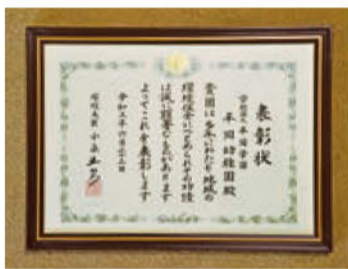 表彰状
学校法人本間学園
本間幼稚園殿
貴園は多年にわたり地域の
環境保全につとめられその功績
は誠に顕著なものがあります
よってこれを表彰します
令和三年六月二十三日
環境大臣 小泉進次郎